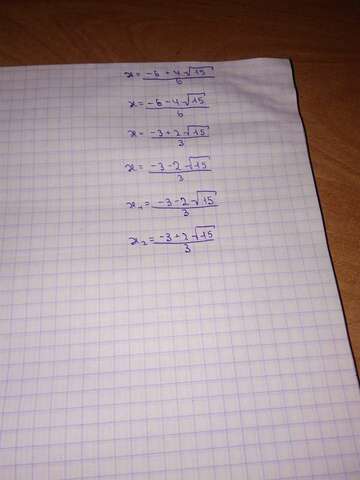 x = (-6 + 4√15)/6
x = (-6 - 4√15)/6
x = (-3 + 2√15)/3
x = (-3 - 2√15)/3
x₁ = (-3 - 2√15)/3
x₂ = (-3 + 2√15)/3